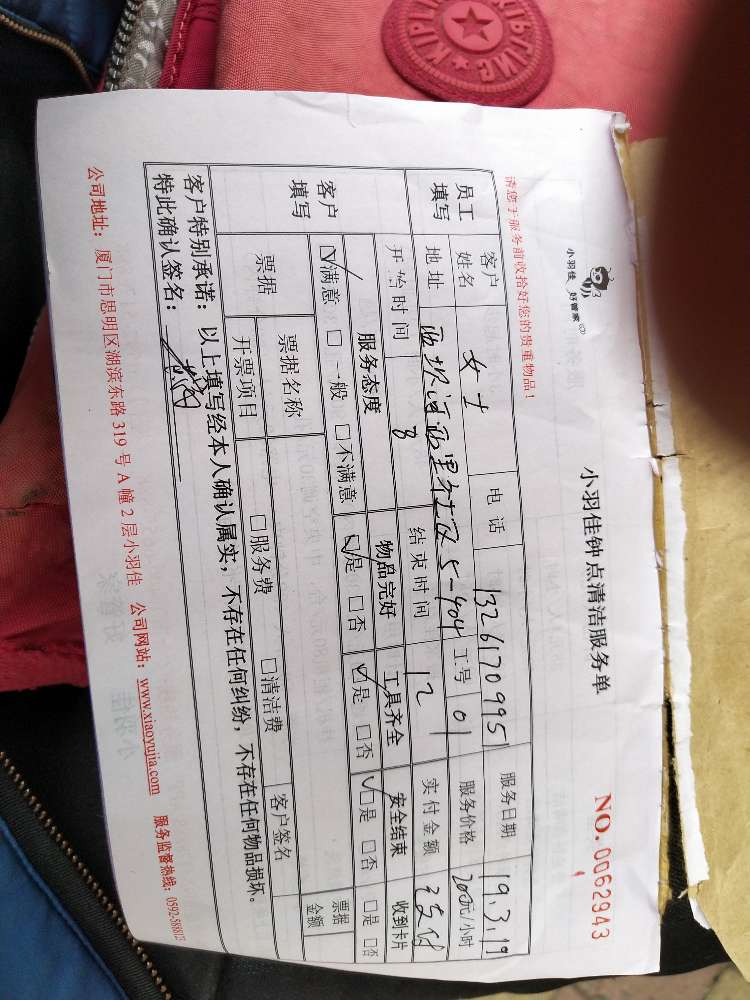 KIPLING
小羽佳 好管家
小羽佳钟点清洁服务单
NO. 0062943
请您于服务前收拾好您的贵重物品!
员工填写
客户姓名 女士 电话 1326170995 服务日期 19.3.19
地址 5-404 工号 01 服务价格 200元/小时
开始时间 8 结束时间 12 实付金额
客户填写
服务态度 物品完好 工具齐全 安全结束 收到卡片
☑满意 □一般 □不满意 ☑是 □否 ☑是 □否 ☑是 □否 □是 □否
票据 票据名称 客户签名 票据金额
开票项目 □服务费 □清洁费
客户特别承诺:以上填写经本人确认属实,不存在任何纠纷,不存在任何物品损坏。
特此确认签名:
公司地址:厦门市思明区湖滨东路 319 号 A 幢 2 层小羽佳 公司网站:www.xiaoyujia.com 服务监督热线:0592-588812